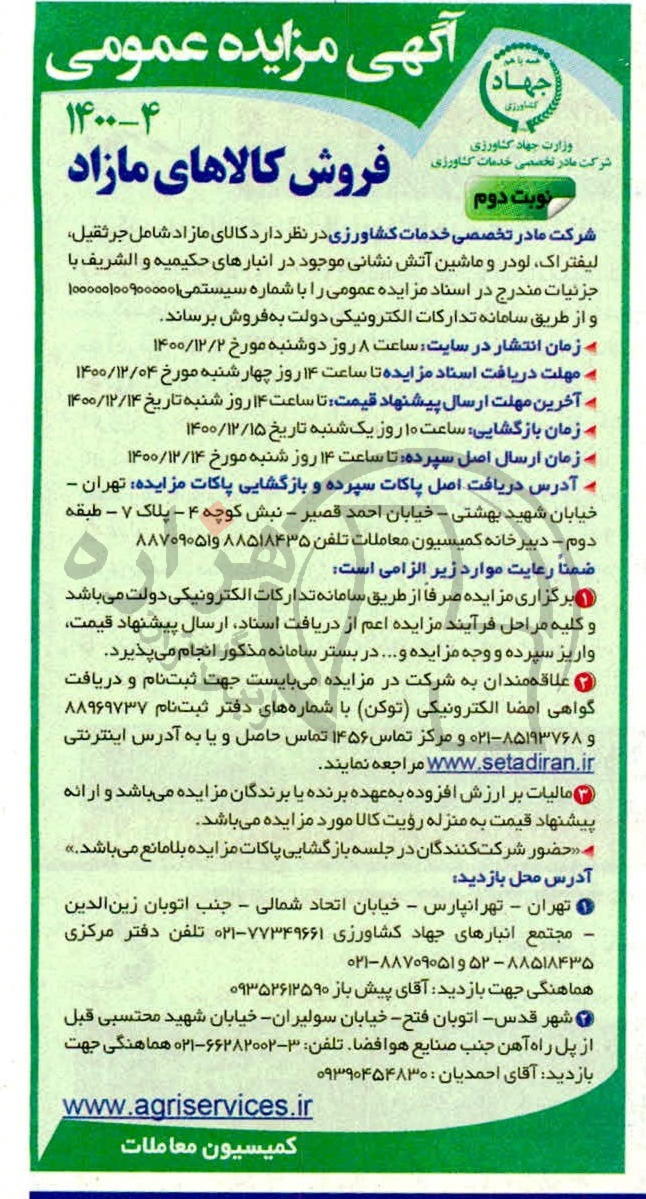 آگهی مزایده عمومی
همه با هم
جهاد
کشاورزی
وزارت جهاد کشاورزی
شرکت مادر تخصصی خدمات کشاورزی
۱۴۰۰-۴
فروش کالاهای مازاد
نوبت دوم
شرکت مادر تخصصی خدمات کشاورزی در نظر دارد کالای مازاد شامل جرثقیل،
لیفتراک، لودر و ماشین آتش نشانی موجود در انبارهای حکیمیه و الشریف با
جزئیات مندرج در اسناد مزایده عمومی را با شماره سیستمی ۱۰۰۰۰۰۱۰۰۹۰۰۰۰۰۱
و از طریق سامانه تدارکات الکترونیکی دولت به‌فروش برساند.
زمان انتشار در سایت: ساعت ۸ روز دوشنبه مورخ ۱۴۰۰/۱۲/۲
مهلت دریافت اسناد مزایده تا ساعت ۱۴ روز چهارشنبه مورخ ۱۴۰۰/۱۲/۰۴
آخرین مهلت ارسال پیشنهاد قیمت: تا ساعت ۱۴ روز شنبه تاریخ ۱۴۰۰/۱۲/۱۴
زمان بازگشایی: ساعت ۱۰ روز یک‌شنبه تاریخ ۱۴۰۰/۱۲/۱۵
زمان ارسال اصل سپرده: تا ساعت ۱۴ روز شنبه مورخ ۱۴۰۰/۱۲/۱۴
آدرس دریافت اصل پاکات سپرده و بازگشایی پاکات مزایده: تهران -
خیابان شهید بهشتی - خیابان احمد قصیر - نبش کوچه ۴ - پلاک ۷ - طبقه
دوم - دبیرخانه کمیسیون معاملات تلفن ۸۸۵۱۸۴۳۵ و ۸۸۷۰۹۰۵۱
ضمناً رعایت موارد زیر الزامی است:
۱ برگزاری مزایده صرفاً از طریق سامانه تدارکات الکترونیکی دولت می‌باشد
و کلیه مراحل فرآیند مزایده اعم از دریافت اسناد، ارسال پیشنهاد قیمت،
واریز سپرده و وجه مزایده و... در بستر سامانه مذکور انجام می‌پذیرد.
۲ علاقه‌مندان به شرکت در مزایده می‌بایست جهت ثبت‌نام و دریافت
گواهی امضا الکترونیکی (توکن) با شماره‌های دفتر ثبت‌نام ۸۸۹۶۹۷۳۷
و ۸۵۱۹۳۷۶۸-۰۲۱ و مرکز تماس ۱۴۵۶ تماس حاصل و یا به آدرس اینترنتی
www.setadiran.ir مراجعه نمایند.
۳ مالیات بر ارزش افزوده به‌عهده برنده یا برندگان مزایده می‌باشد و ارائه
پیشنهاد قیمت به منزله رؤیت کالا مورد مزایده می‌باشد.
«حضور شرکت‌کنندگان در جلسه بازگشایی پاکات مزایده بلامانع می‌باشد.»
آدرس محل بازدید:
۱ تهران - تهرانپارس - خیابان اتحاد شمالی - جنب اتوبان زین‌الدین
- مجتمع انبارهای جهاد کشاورزی ۷۷۳۴۹۶۶۱-۰۲۱ تلفن دفتر مرکزی
۸۸۵۱۸۴۳۵ - ۵۲ و ۸۸۷۰۹۰۵۱-۰۲۱
هماهنگی جهت بازدید: آقای پیش باز ۰۹۳۵۲۶۱۲۵۹۰
۲ شهر قدس- اتوبان فتح- خیابان سولیران- خیابان شهید محتسبی قبل
از پل راه‌آهن جنب صنایع هوافضا. تلفن: ۳-۶۶۲۸۲۰۰۲-۰۲۱ هماهنگی جهت
بازدید: آقای احمدیان: ۰۹۳۹۰۴۵۴۸۳۰
www.agriservices.ir
کمیسیون معاملات
هزاره